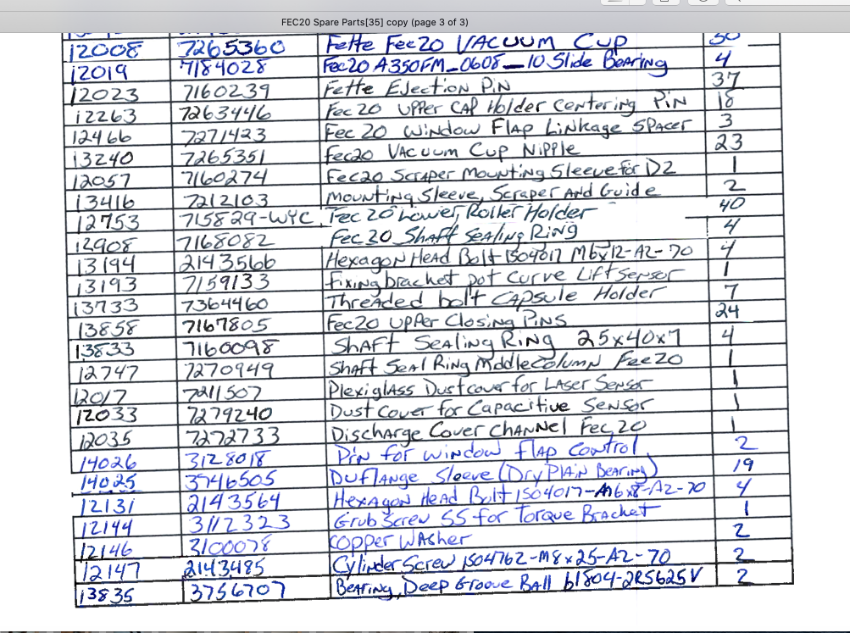 FEC20 Spare Parts[35] copy (page 3 of 3)
12008 7265360 Fette Fec20 VACUUM CUP 50
12019 7184028 Fec20 A350FM_0608_10 Slide Bearing 4
12023 7160239 Fette Ejection Pin 37
12263 7263446 Fec 20 Upper CAP Holder Centering Pin 18
12466 7271423 Fec 20 Window Flap Linkage Spacer 3
13240 7265351 fec20 Vacuum Cup Nipple 23
12057 7160274 Fec20 Scraper Mounting Sleeve for D2 1
13416 7212103 Mounting Sleeve, Scraper And Guide 2
12753 715829-WYC Fec 20 Lower Roller Holder 40
12908 7168082 Fec 20 Shaft Sealing Ring 4
13194 2143566 Hexagon Head Bolt ISO4017 M6x12-A2-70 4
13193 7159133 Fixing bracket Dot Curve Lift Sensor 1
13733 7364460 Threaded bolt CAPsule Holder 7
13858 7167805 Fec20 Upper Closing Pins 24
13833 7160098 Shaft Sealing Ring 25x40x7 4
12747 7270949 Shaft Seal Ring Middle Column Fec20 1
12017 7211507 Plexiglass Dustcover for Laser Sensor 1
12033 7279240 Dust Cover for Capacitive Sensor 1
12035 7272733 Discharge Cover Channel Fec 20 1
14026 3128018 Pin for window flap Control 2
14025 3746505 DU flange Sleeve (Dry Plain Bearing) 19
12131 2143564 Hexagon Head Bolt ISO4017-M6x8-A2-70 4
12144 3112323 Grub Screw SS for Torque Bracket 1
12146 3100078 Copper Washer 2
12147 2143485 Cylinder Screw ISO4762-M8x25-A2-70 2
13835 3756707 Bearing, Deep Groove Ball 61804-2RS625V 2